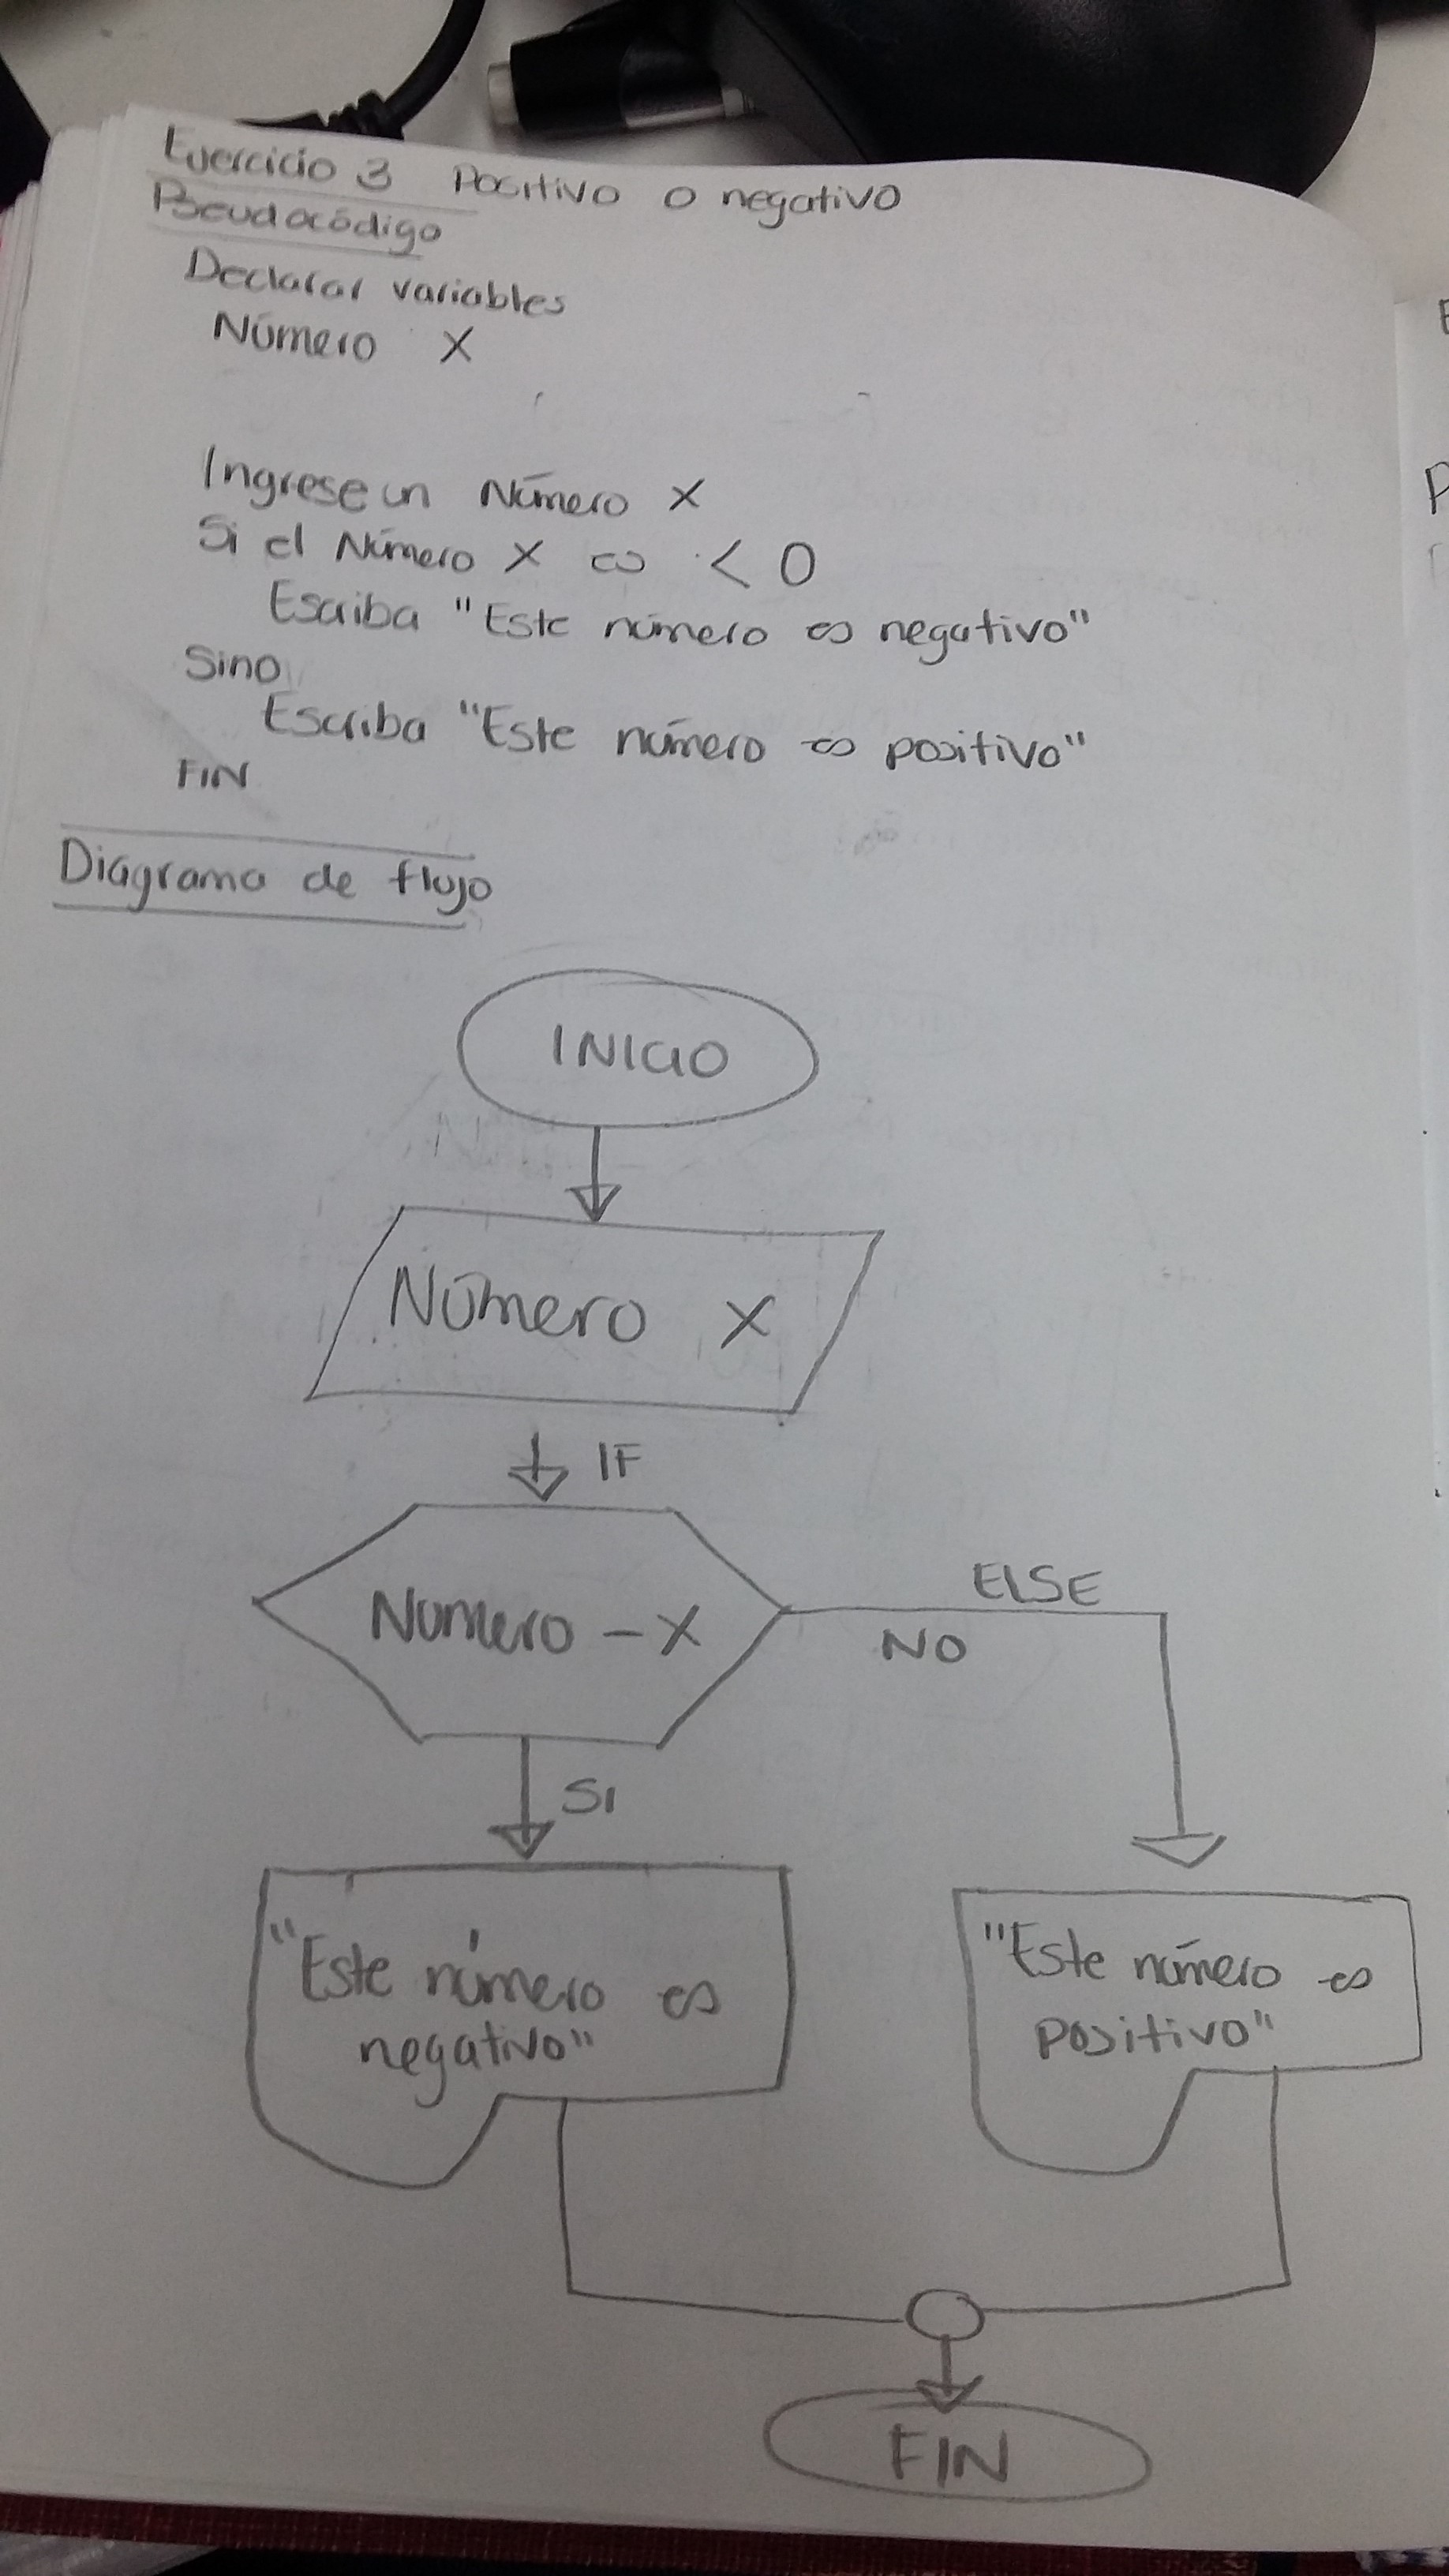 Ejercicio 3 Positivo o negativo
Pseudocódigo
Declarar variables
Número X
Ingrese un Número X
Si el Número X es < 0
Escriba "Este número es negativo"
Sino
Escriba "Este número es positivo"
FIN
Diagrama de flujo
INICIO
Número X
IF
Número - X
ELSE
NO
SI
"Este número es
negativo"
"Este número es
positivo"
FIN